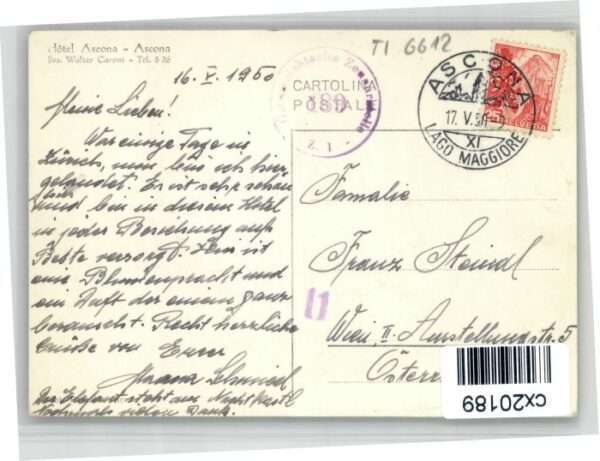 Hôtel Ascona - Ascona
Bes. Walter Caroni - Tel. 8 36
TI 6612
16. V. 1950
CARTOLINA
POSTALE
ASCONA
17. V. 50
XI
LAGO MAGGIORE
HELVETIA
Meine Lieben!
War einige Tage in
Zürich, nun bin ich hier
gelandet. Es ist sehr schön
hier und bin in diesem Hotel
in jeder Beziehung aufs
Beste versorgt. Hier ist
eine Blumenpracht und
ein Duft der einen ganz
berauscht. Recht herzliche
Grüße von Eurer
Der Elefant steht am Nachtkastl
vielen Dank.
Familie
Franz Steindl
Wien, II. Ausstellungsstr. 5
Österr
11
cx20189